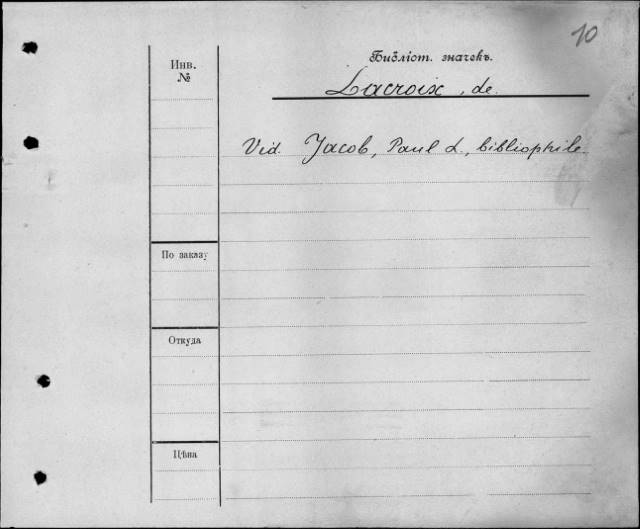 10
Библіот. значекъ.
Инв.
№
Lacroix, de.
Vid. Jacob, Paul L., bibliophile.
По заказу
Откуда
Цѣна